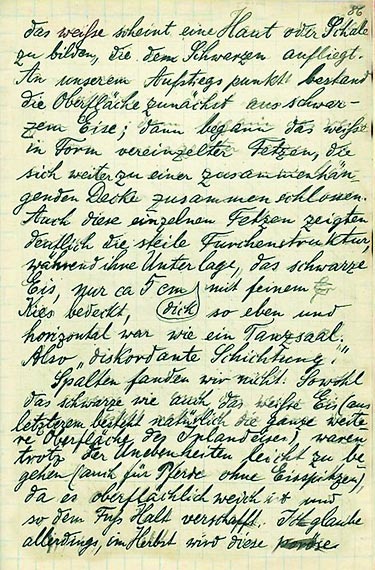 86
das weiße scheint eine Haut oder Schale
zu bilden, die dem Schwarzen aufliegt.
An unserem Aufstiegspunkt bestand
die Oberfläche zunächst aus schwar-
zem Eise; dann begann das weiße
in Form vereinzelter Fetzen, die
sich weiter zu einer zusammenhän-
genden Decke zusammenschlossen.
Auch diese einzelnen Fetzen zeigten
deutlich die steile Furchenstruktur,
während ihre Unterlage, das schwarze
Eis, nur ca 5 cm mit feinem
Kies bedeckt, dick so eben und
horizontal war wie ein Tanzsaal.
Also „diskordante Schichtung!"
Spalten fanden wir nicht. Sowohl
das schwarze wie auch das weiße Eis (aus
letzterem besteht natürlich die ganze weite-
re Oberfläche des Inlandeises), waren
trotz der Unebenheiten leicht zu be
gehen (auch für Pferde ohne Eisspitzen),
da es oberflächlich weich ist und
so dem Fuß Halt verschafft. Ich glaube
allerdings, im Herbst wird diese